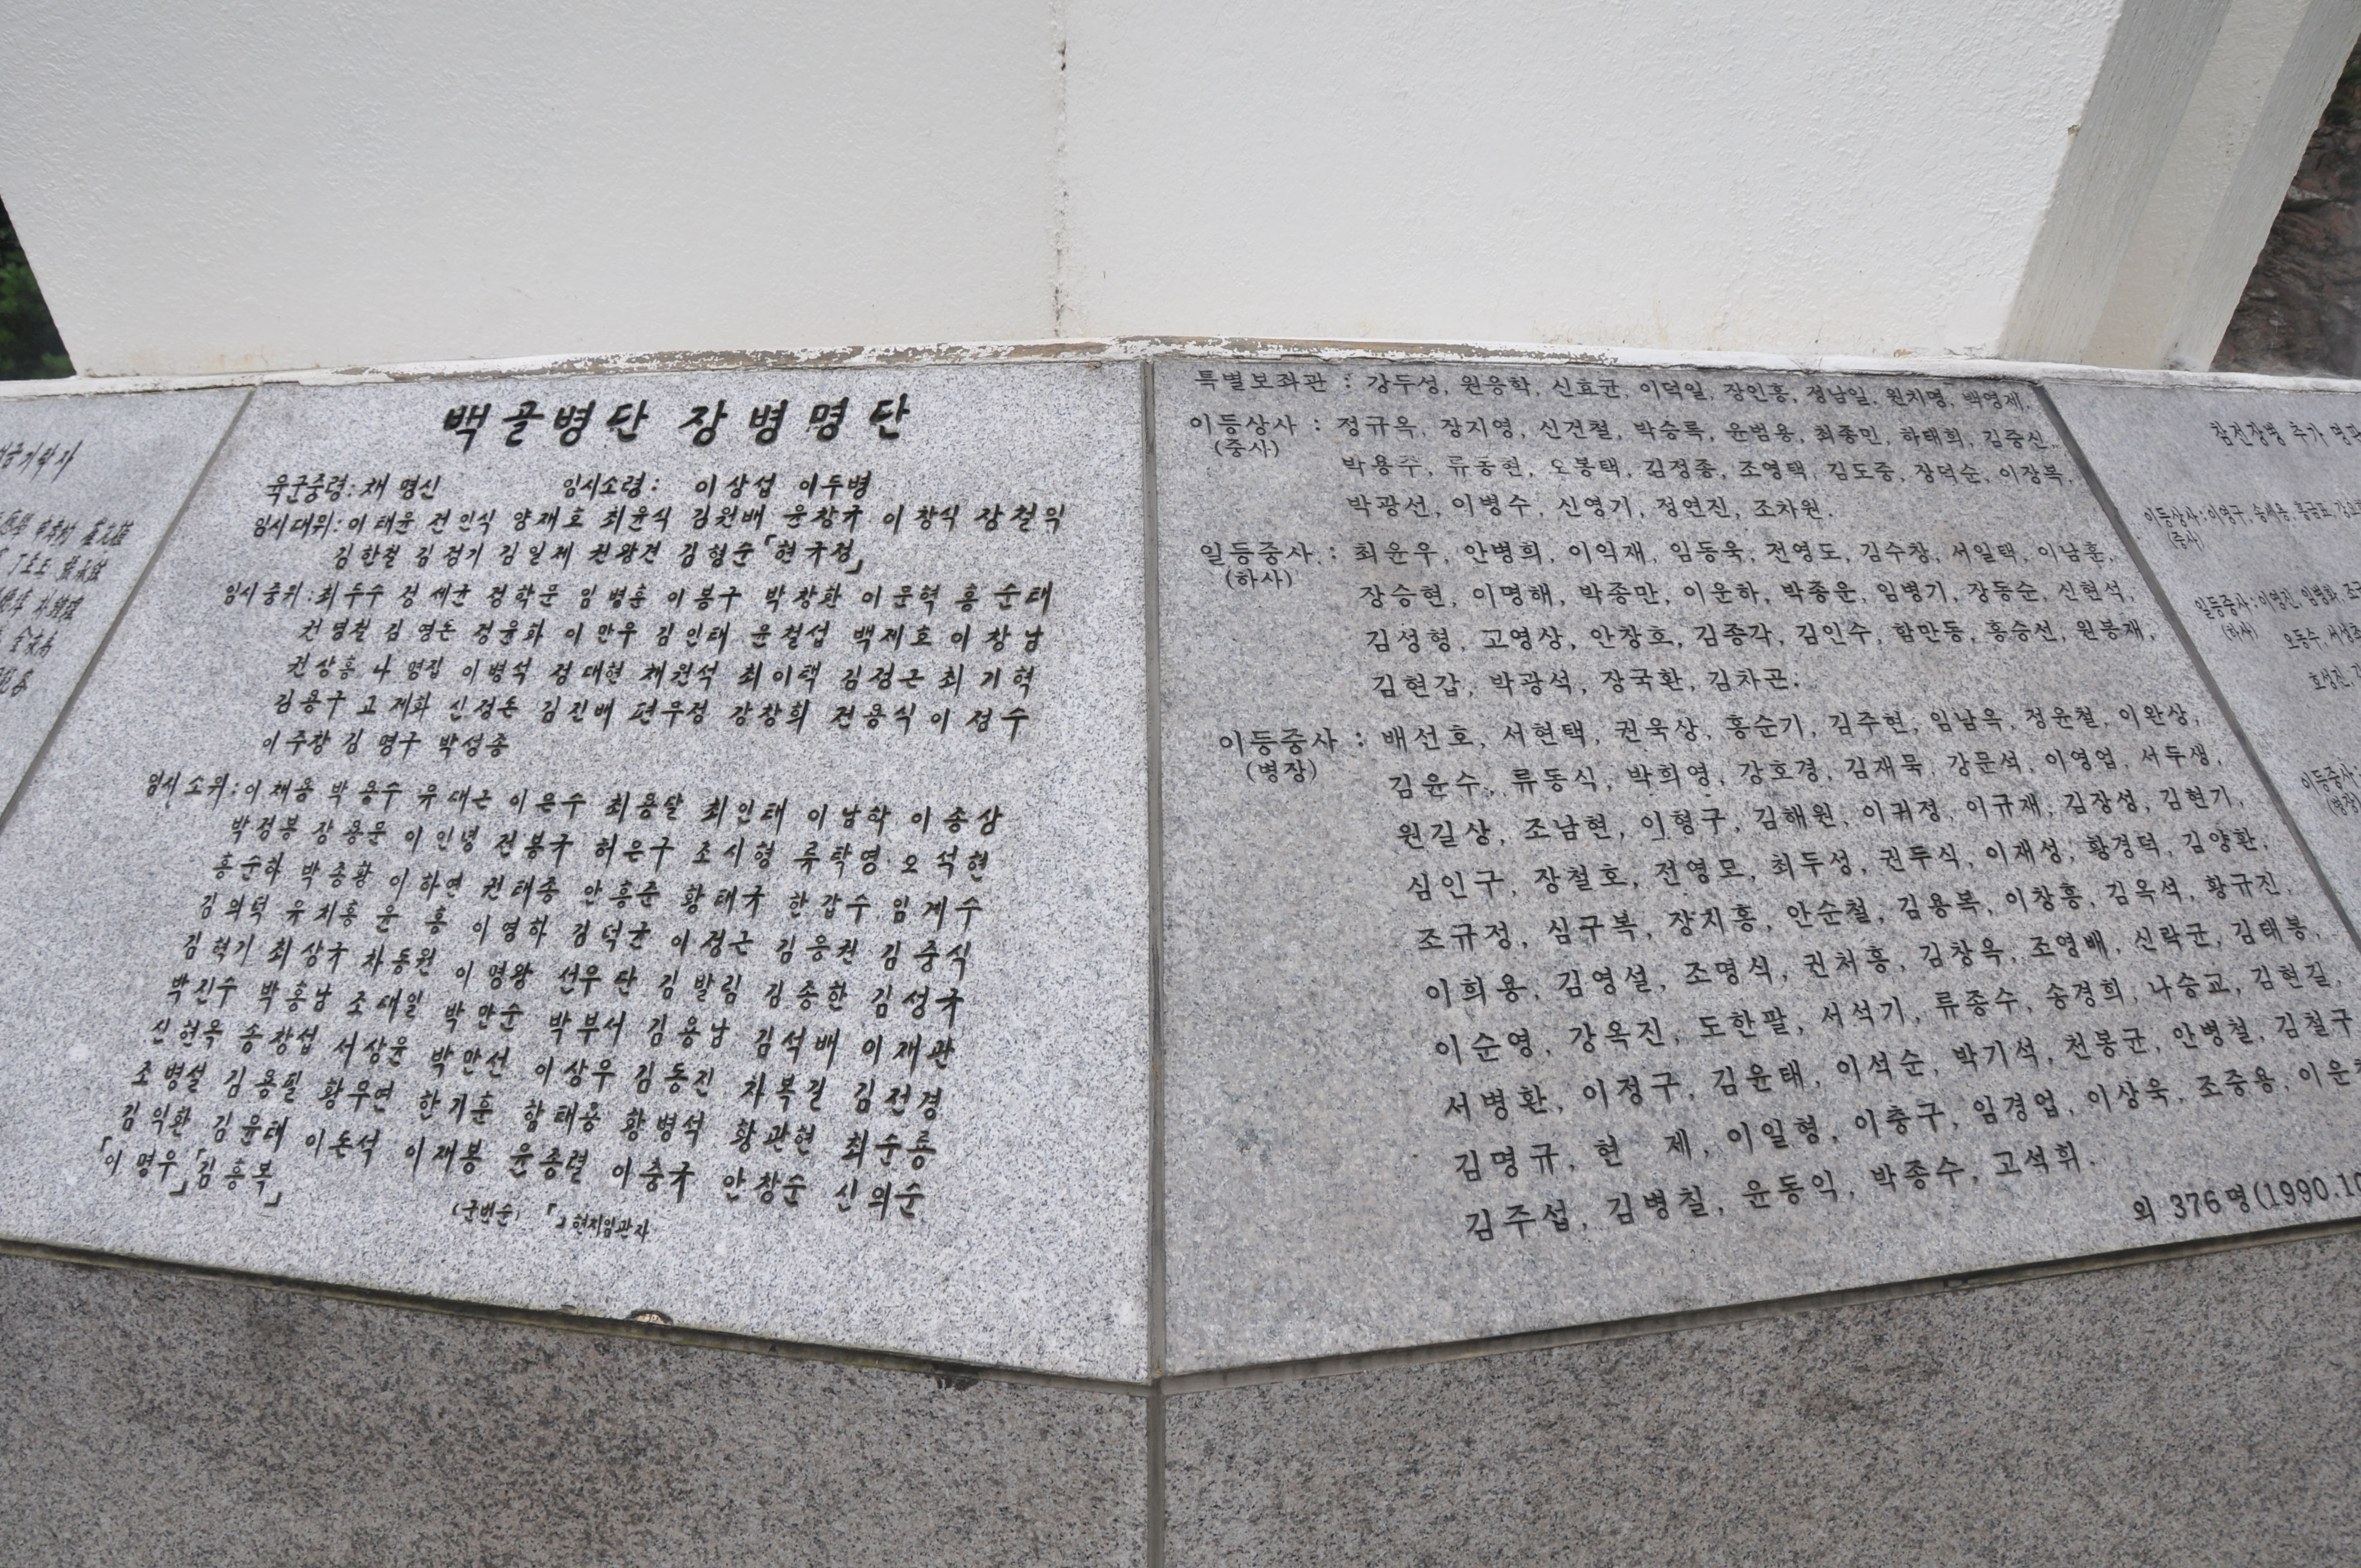 백골병단 장병명단
육군중령: 채명신 임시소령: 이상섭 이두병
임시대위: 이태윤 전인식 양재호 최윤식 김원배 윤창규 이창식 장철익
김한철 김정기 김일제 권왕견 김형순「현규정」
임시중위: 최두수 정세균 정학문 임병훈 이봉구 박창환 이문혁 홍순태
전명철 김영돈 정윤화 이만우 김인태 윤철섭 백제호 이창남
권상흥 나명집 이병석 정대현 채원석 최이택 김정근 최기혁
김용구 고제화 신정돈 김진배 편무정 강창희 전용식 이정수
이주장 김명구 박성종
임시소위: 이채용 박용수 유대근 이은수 최용달 최인태 이남학 이종삼
박정봉 장용문 이인녕 전봉규 허은구 조시형 류탁영 오석현
홍순하 박종황 이하연 권태종 안흥준 황태규 한갑수 임계수
김의덕 유지홍 윤홍 이영하 김덕균 이정근 김응권 김중식
김혁기 최상규 차동원 이명왕 선우단 김발림 김종한 김성규
박진수 박흥남 조대일 박만순 박부서 김용남 김석배 이재관
신현옥 송창섭 서상윤 박만선 이상우 김동진 차복길 김전경
조병설 김용필 황무연 한기훈 함태용 황병석 황관현 최순룡
김익환 김윤태 이돈석 이재봉 윤종렬 이충규 안창순 신의순
「이명우」「김흥복」
(군번순) 「」현지임관자
특별보좌관 : 강두성, 원응학, 신효균, 이덕일, 장인홍, 정남일, 원치명, 백영제,
이등상사 : 정규옥, 장지영, 신건철, 박승록, 윤범용, 최종민, 하태희, 김중신,
(중사)
박용주, 류동현, 오봉택, 김정종, 조영택, 김도중, 장덕순, 이장복,
박광선, 이병수, 신영기, 정연진, 조차원.
일등중사 : 최윤우, 안병희, 이익재, 임동욱, 전영도, 김수창, 서일택, 이남훈,
(하사)
장승현, 이명해, 박종만, 이운하, 박종운, 임병기, 강동순, 신현석,
김성형, 고영상, 안창호, 김종각, 김인수, 함만동, 홍승선, 원봉재,
김현갑, 박광석, 장국환, 김차곤.
이등중사 : 배선호, 서현택, 권욱상, 홍순기, 김주현, 임남옥, 정윤철, 이완상,
(병장)
김윤수, 류동식, 박희영, 강호경, 김재묵, 강문석, 이영업, 서두생,
원길상, 조남현, 이형구, 김해원, 이귀정, 이규재, 김장성, 김현기,
심인구, 장철호, 전영모, 최두성, 권두식, 이재성, 황경덕, 김양환,
조규정, 심구복, 장지홍, 안순철, 김용복, 이창흥, 김옥석, 황규진,
이희용, 김영설, 조명식, 권처흥, 김창옥, 조영배, 신락균, 김태봉,
이순영, 강옥진, 도한팔, 서석기, 류종수, 송경희, 나승교, 김현길,
서병환, 이정구, 김윤태, 이석순, 박기석, 천봉균, 안병철, 김철구
김명규, 현제, 이일형, 이충구, 임경업, 이상욱, 조중용, 이운
김주섭, 김병칠, 윤동익, 박종수, 고석휘.
외 376명(1990.10
참전장병 추가 명
이등상사:이영구,
(중사)
일등중사:이영진, 임병화,
(하사)
오동수,
이등중사:
(병장)